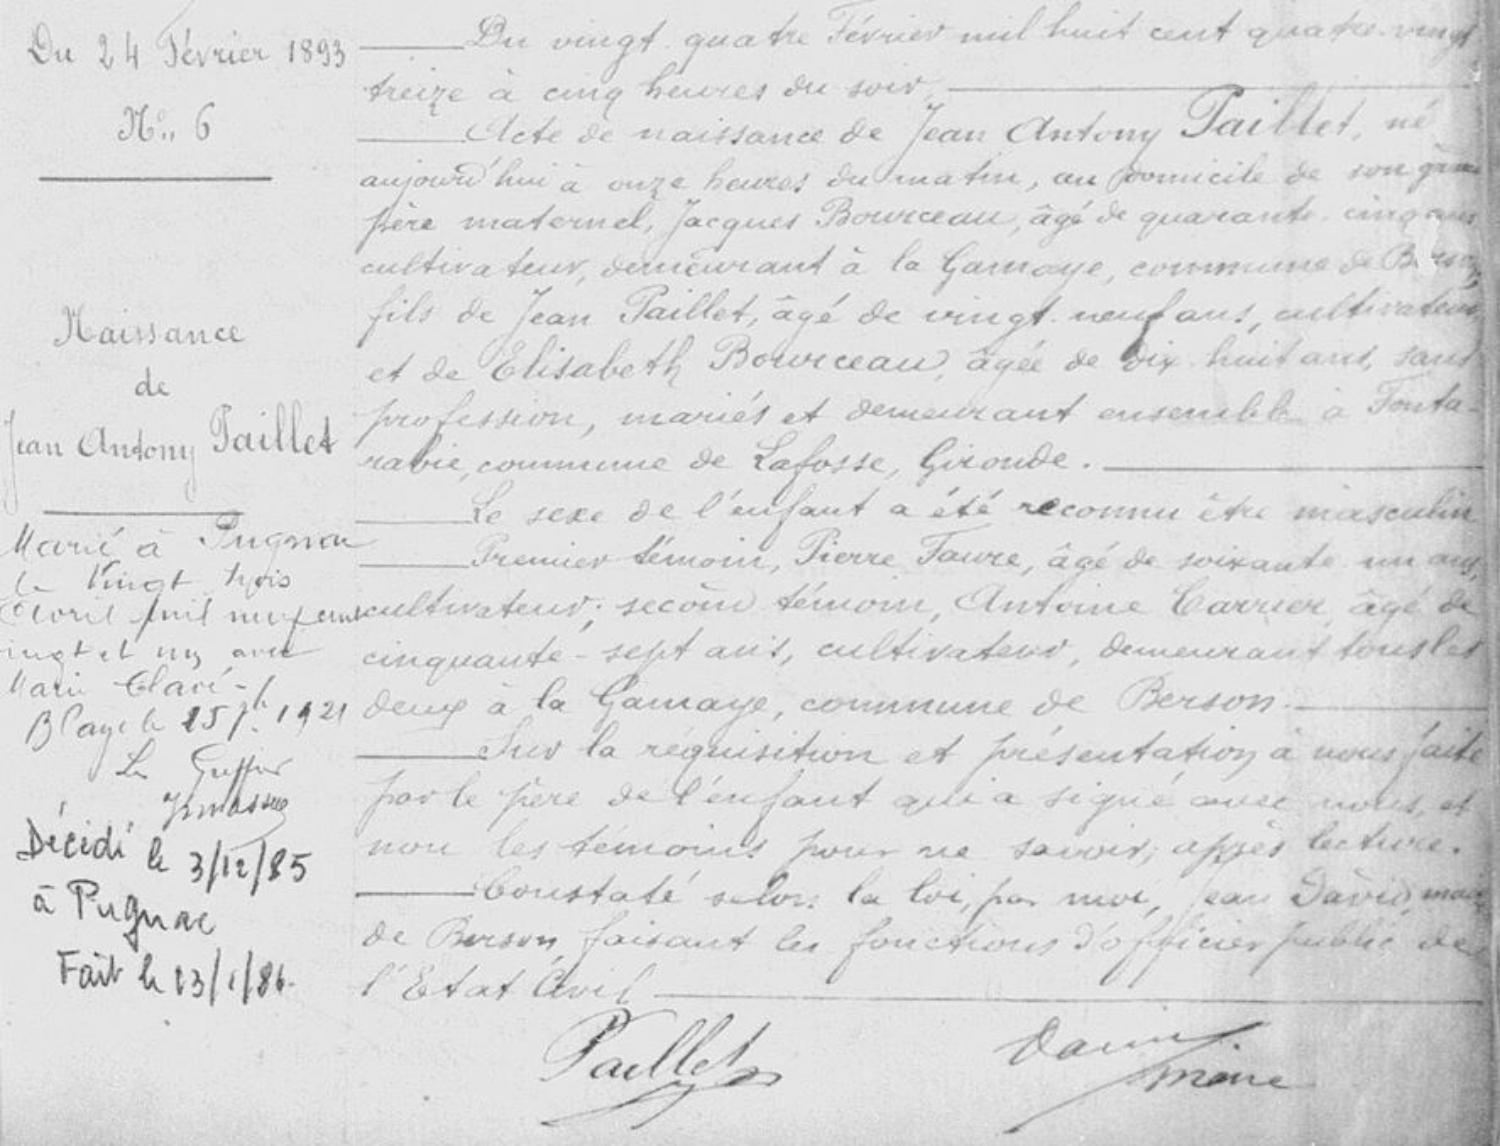 Du 24 Février 1893
N°. 6
Naissance
de
Jean Antony Paillet
Marié à Pugnac
le vingt trois
avril mil neuf cent
vingt et un avec
Marie Claré
Blaye le 25 1921
Le Greffier
Décédé le 3/12/85
à Pugnac
Fait le 23/1/86.
Du vingt quatre Février mil huit cent quatre-vingt
treize à cinq heures du soir,
Acte de naissance de Jean Antony Paillet, né
aujourd'hui à onze heures du matin, au domicile de son grand
père maternel, Jacques Bourceau, âgé de quarante-cinq ans
cultivateur, demeurant à la Gamaye, commune de Berson,
fils de Jean Paillet, âgé de vingt-neuf ans, cultivateur
et de Elisabeth Bourceau, âgée de dix-huit ans, sans
profession, mariés et demeurant ensemble à Fonta-
rabie, commune de Lafosse, Gironde.
Le sexe de l'enfant a été reconnu être masculin
Premier témoin, Pierre Faure, âgé de soixante un ans,
cultivateur; second témoin, Antoine Carrier, âgé de
cinquante-sept ans, cultivateur, demeurant tous les
deux à la Gamaye, commune de Berson.
Sur la réquisition et présentation à nous faite
par le père de l'enfant qui a signé avec nous, et
non les témoins pour ne savoir, après lecture.
Constaté selon la loi, par moi, Jean David, maire
de Berson, faisant les fonctions d'officier public de
l'Etat Civil
Paillet
David
maire